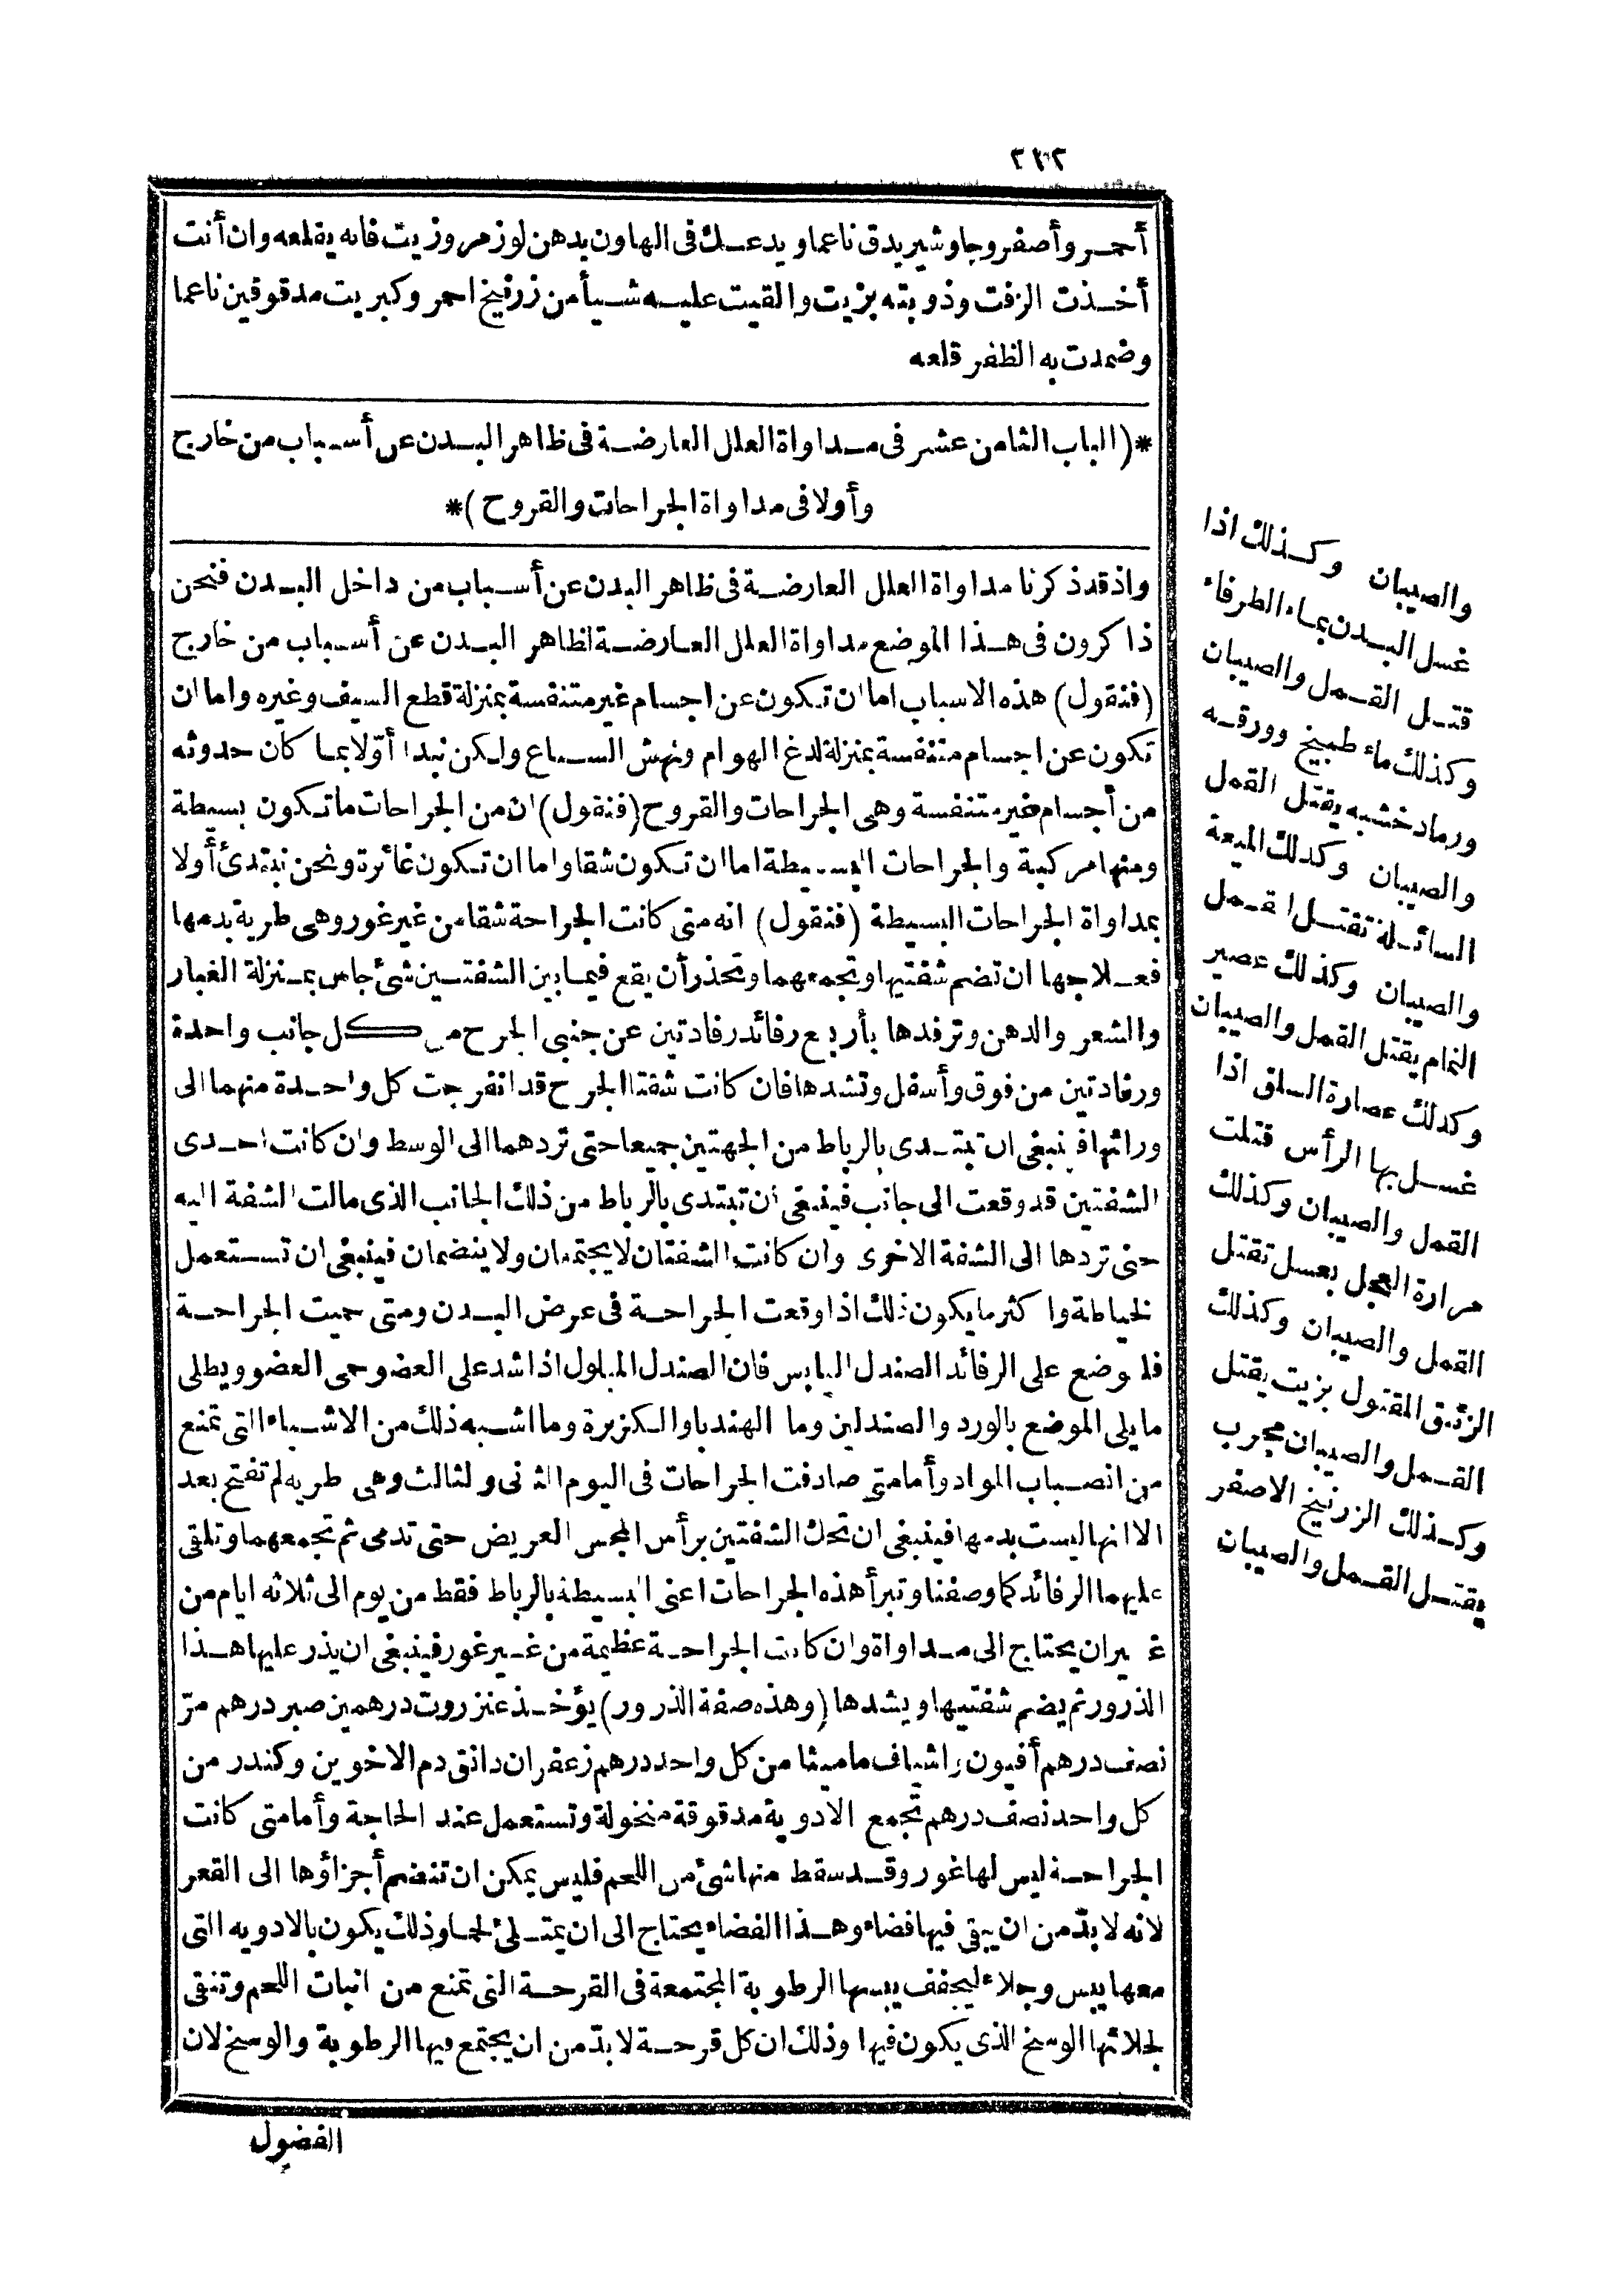 أحمر وأصفر وجاوشير يدق ناعما ويدعك فى الهاون بدهن لوز مر وزيت فانه يقلعه وان أنت
أخذت الزفت وذوبته بزيت والقيت عليه شيأ من زرنيخ احمر وكبريت مدقوقين ناعما
وضمدت به الظفر قلعه
*(الباب الثامن عشر فى مداواة العلل العارضة فى ظاهر البدن عن أسباب من خارج
وأولا فى مداواة الجراحات والقروح)*
واذ قد ذكرنا مداواة العلل العارضة فى ظاهر البدن عن أسباب من داخل البدن فنحن
ذاكرون فى هذا الموضع مداواة العلل العارضة لظاهر البدن عن أسباب من خارج
(فنقول) هذه الاسباب اما ان تكون عن اجسام غير متنفسة بمنزلة قطع السيف وغيره واما ان
تكون عن اجسام متنفسة بمنزلة لدغ الهوام ونهش السباع ولكن نبدا أوّلا بما كان حدوثه
من أجسام غير متنفسة وهى الجراحات والقروح (فنقول) ان من الجراحات ما تكون بسيطة
ومنها مركبة والجراحات البسيطة اما ان تكون شقا واما ان تكون غائرة ونحن نبتدئ أولا
بمداواة الجراحات البسيطة (فنقول) انه متى كانت الجراحة شقا من غير غور وهى طرية بدمها
فعلاجها ان تضم شفتيها وتجمعهما وتحذر أن يقع فيما بين الشفتين شئ جاس بمنزلة الغبار
والشعر والدهن وترفدها بأربع رفائد رفادتين عن جنبى الجرح من كل جانب واحدة
ورفادتين من فوق وأسفل وتشدها فان كانت شفتا الجرح قد انفرجت كل واحدة منهما الى
ورائها فينبغى ان تبتدى بالرباط من الجهتين جميعا حتى تردهما الى الوسط وان كانت احدى
الشفتين قد وقعت الى جانب فينبغى أن تبتدى بالرباط من ذلك الجانب الذى مالت الشفة اليه
حتى تردها الى الشفة الاخرى وان كانت الشفتان لا يجتمعان ولا ينضمان فينبغى ان تستعمل
لخياطة واكثر ما يكون ذلك اذا وقعت الجراحة فى عرض البدن ومتى حميت الجراحة
فلوضع على الرفائد الصندل اليابس فان الصندل المبلول اذا شد على العضو حمى العضو ويطلى
مايلى الموضع بالورد والصندلين وما الهندبا والكزبرة وما اشبه ذلك من الاشياء التى تمنع
من انصباب المواد وأما متى صادفت الجراحات فى اليوم الثانى والثالث وهى طريه لم تفتح بعد
الا انها ليست بدمها فينبغى ان تحك الشفتين برأس المجس العريض حتى تدمى ثم تجمعهما وتلقى
عليهما الرفائد كما وصفنا وتبرأ هذه الجراحات اعنى البسيطة بالرباط فقط من يوم الى ثلاثه ايام من
غير ان يحتاج الى مداواة وان كانت الجراحة عظيمة من غير غور فينبغى ان يذر عليها هذا
الذرور ثم يضم شفتيها ويشدها (وهذه صفة الذرور) يؤخذ عنزروت درهمين صبر درهم مرّ
نصف درهم أفيون واشياف ماميثا من كل واحد درهم زعفران دانق دم الاخوين وكندر من
كل واحد نصف درهم تجمع الادوية مدقوقة منخولة وتستعمل عند الحاجة وأما متى كانت
الجراحة ليس لها غور وقد سقط منها شئ من اللحم فليس يمكن ان تنضم أجزاؤها الى القعر
لانه لا بدّ من ان يبقى فيها فضاء وهذا الفضاء يحتاج الى ان يمتلئ لحما وذلك يكون بالادويه التى
معها يبس وجلاء ليجفف يبسها الرطوبة المجتمعة فى القرحة التى تمنع من انبات اللحم وتنقى
لجلائها الوسخ الذى يكون فيها وذلك ان كل قرحة لا بدّ من ان يجتمع فيها الرطوبة والوسخ لان
الفضول
والصيبان وكذلك اذا
غسل البدن بماء الطرفاء
قتل القمل والصيبان
وكذلك ماء طبيخ وورقه
ورماد خشبه يقتل القمل
والصيبان وكذلك الميعة
السائلة تقتل القمل
والصيبان وكذلك عصير
النمام يقتل القمل والصيبان
وكذلك عصارة السلق اذا
غسل بها الرأس قتلت
القمل والصيبان وكذلك
مرارة العجل بعسل تقتل
القمل والصيبان وكذلك
الزئبق المقتول بزيت يقتل
القمل والصيبان مجرب
وكذلك الزرنيخ الاصفر
يقتل القمل والصيبان